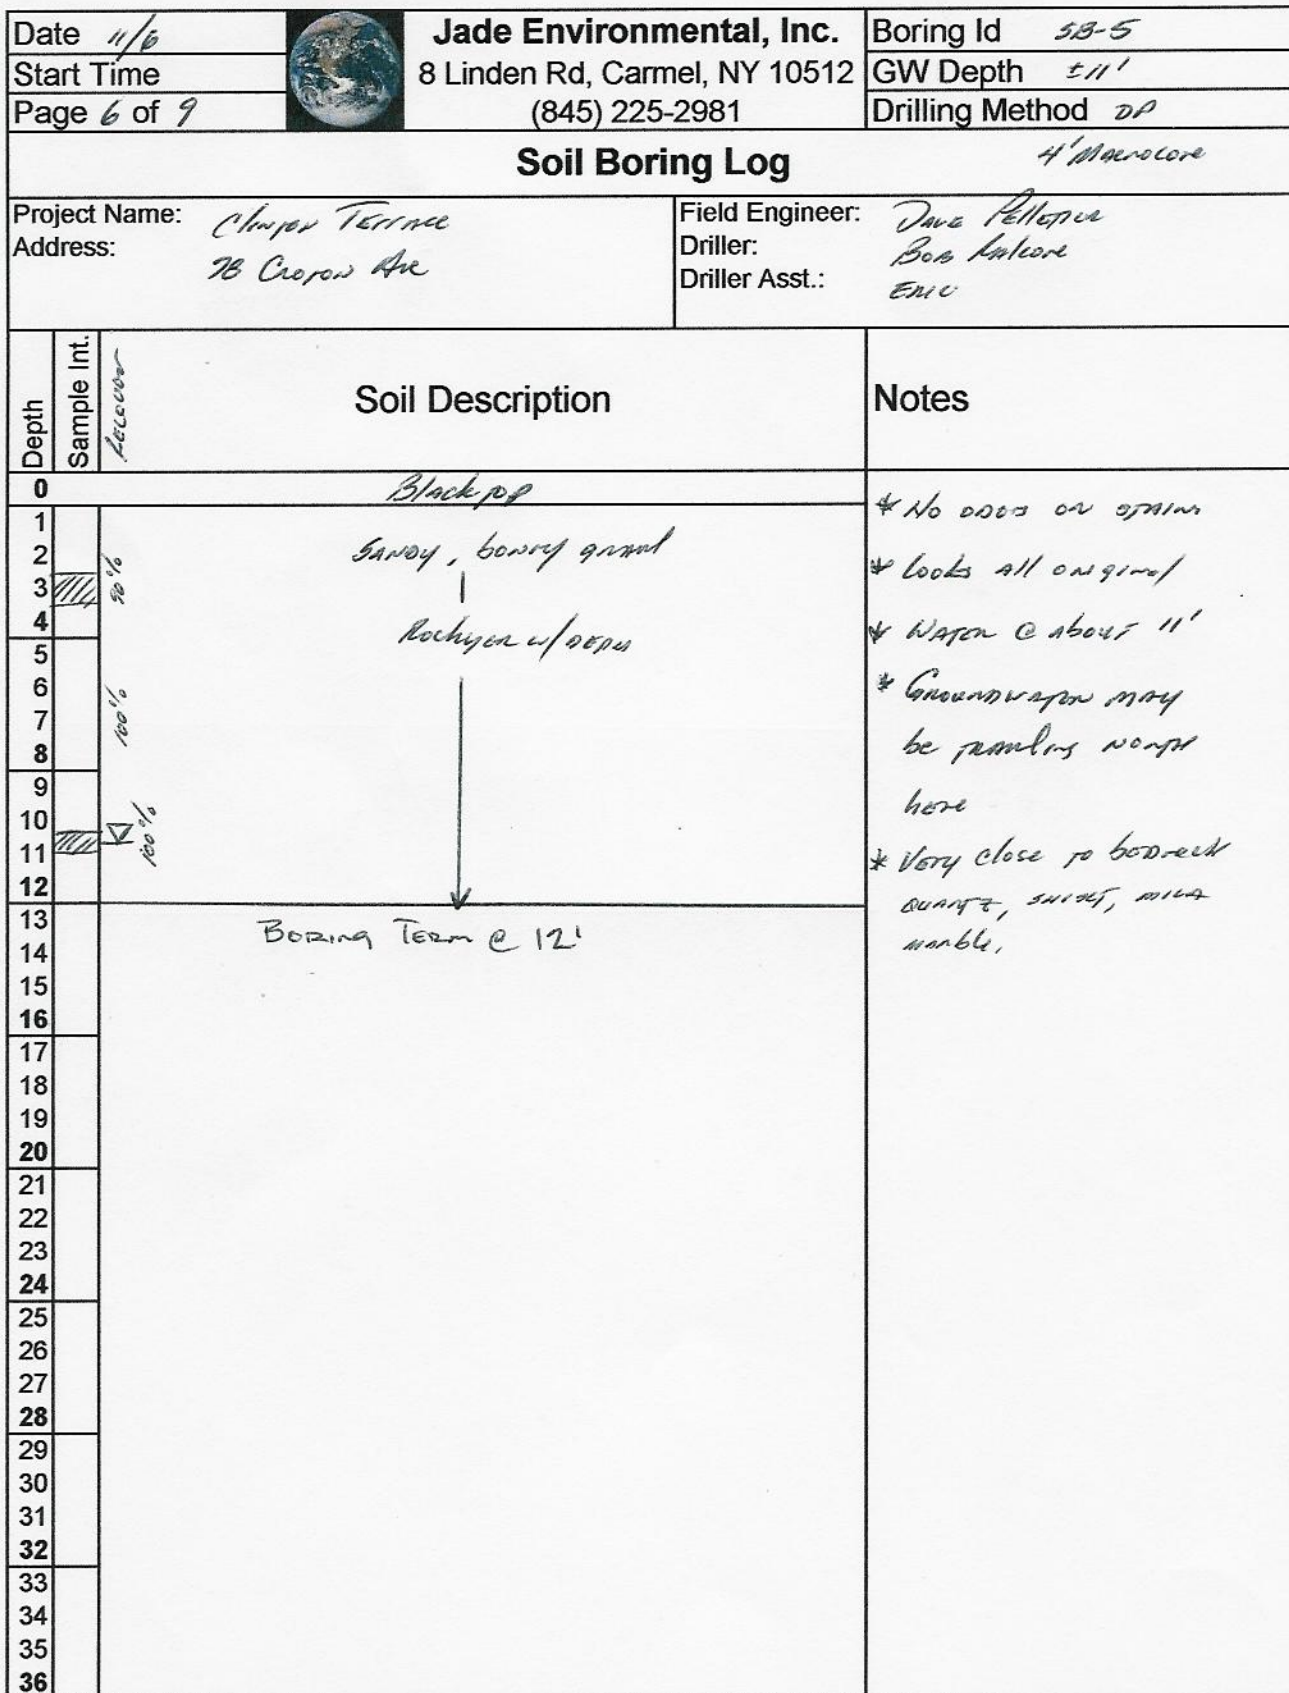 Date 11/6
Start Time
Page 6 of 9
Jade Environmental, Inc.
8 Linden Rd, Carmel, NY 10512
(845) 225-2981
Boring Id SB-5
GW Depth ±11'
Drilling Method DP
Soil Boring Log
4' Macrocore
Project Name: Clinton Terrace
Address: Croton Ave
Field Engineer: Dave Pelletier
Driller: Bob
Driller Asst.: Eric
Depth
Sample Int.
Recovery
Soil Description
Notes
0 Blacktop
1
2
3
4
5
6
7
8
9
10
11
12
13
14
15
16
17
18
19
20
21
22
23
24
25
26
27
28
29
30
31
32
33
34
35
36
90%
100%
100%
Sandy, boney gravel
Rockyer w/ depth
Boring Term @ 12'
* No odor or stains
* Looks all original
* Water @ about 11'
* Groundwater may
be traveling north
here
* Very close to bedrock
quartz, mica
marble,